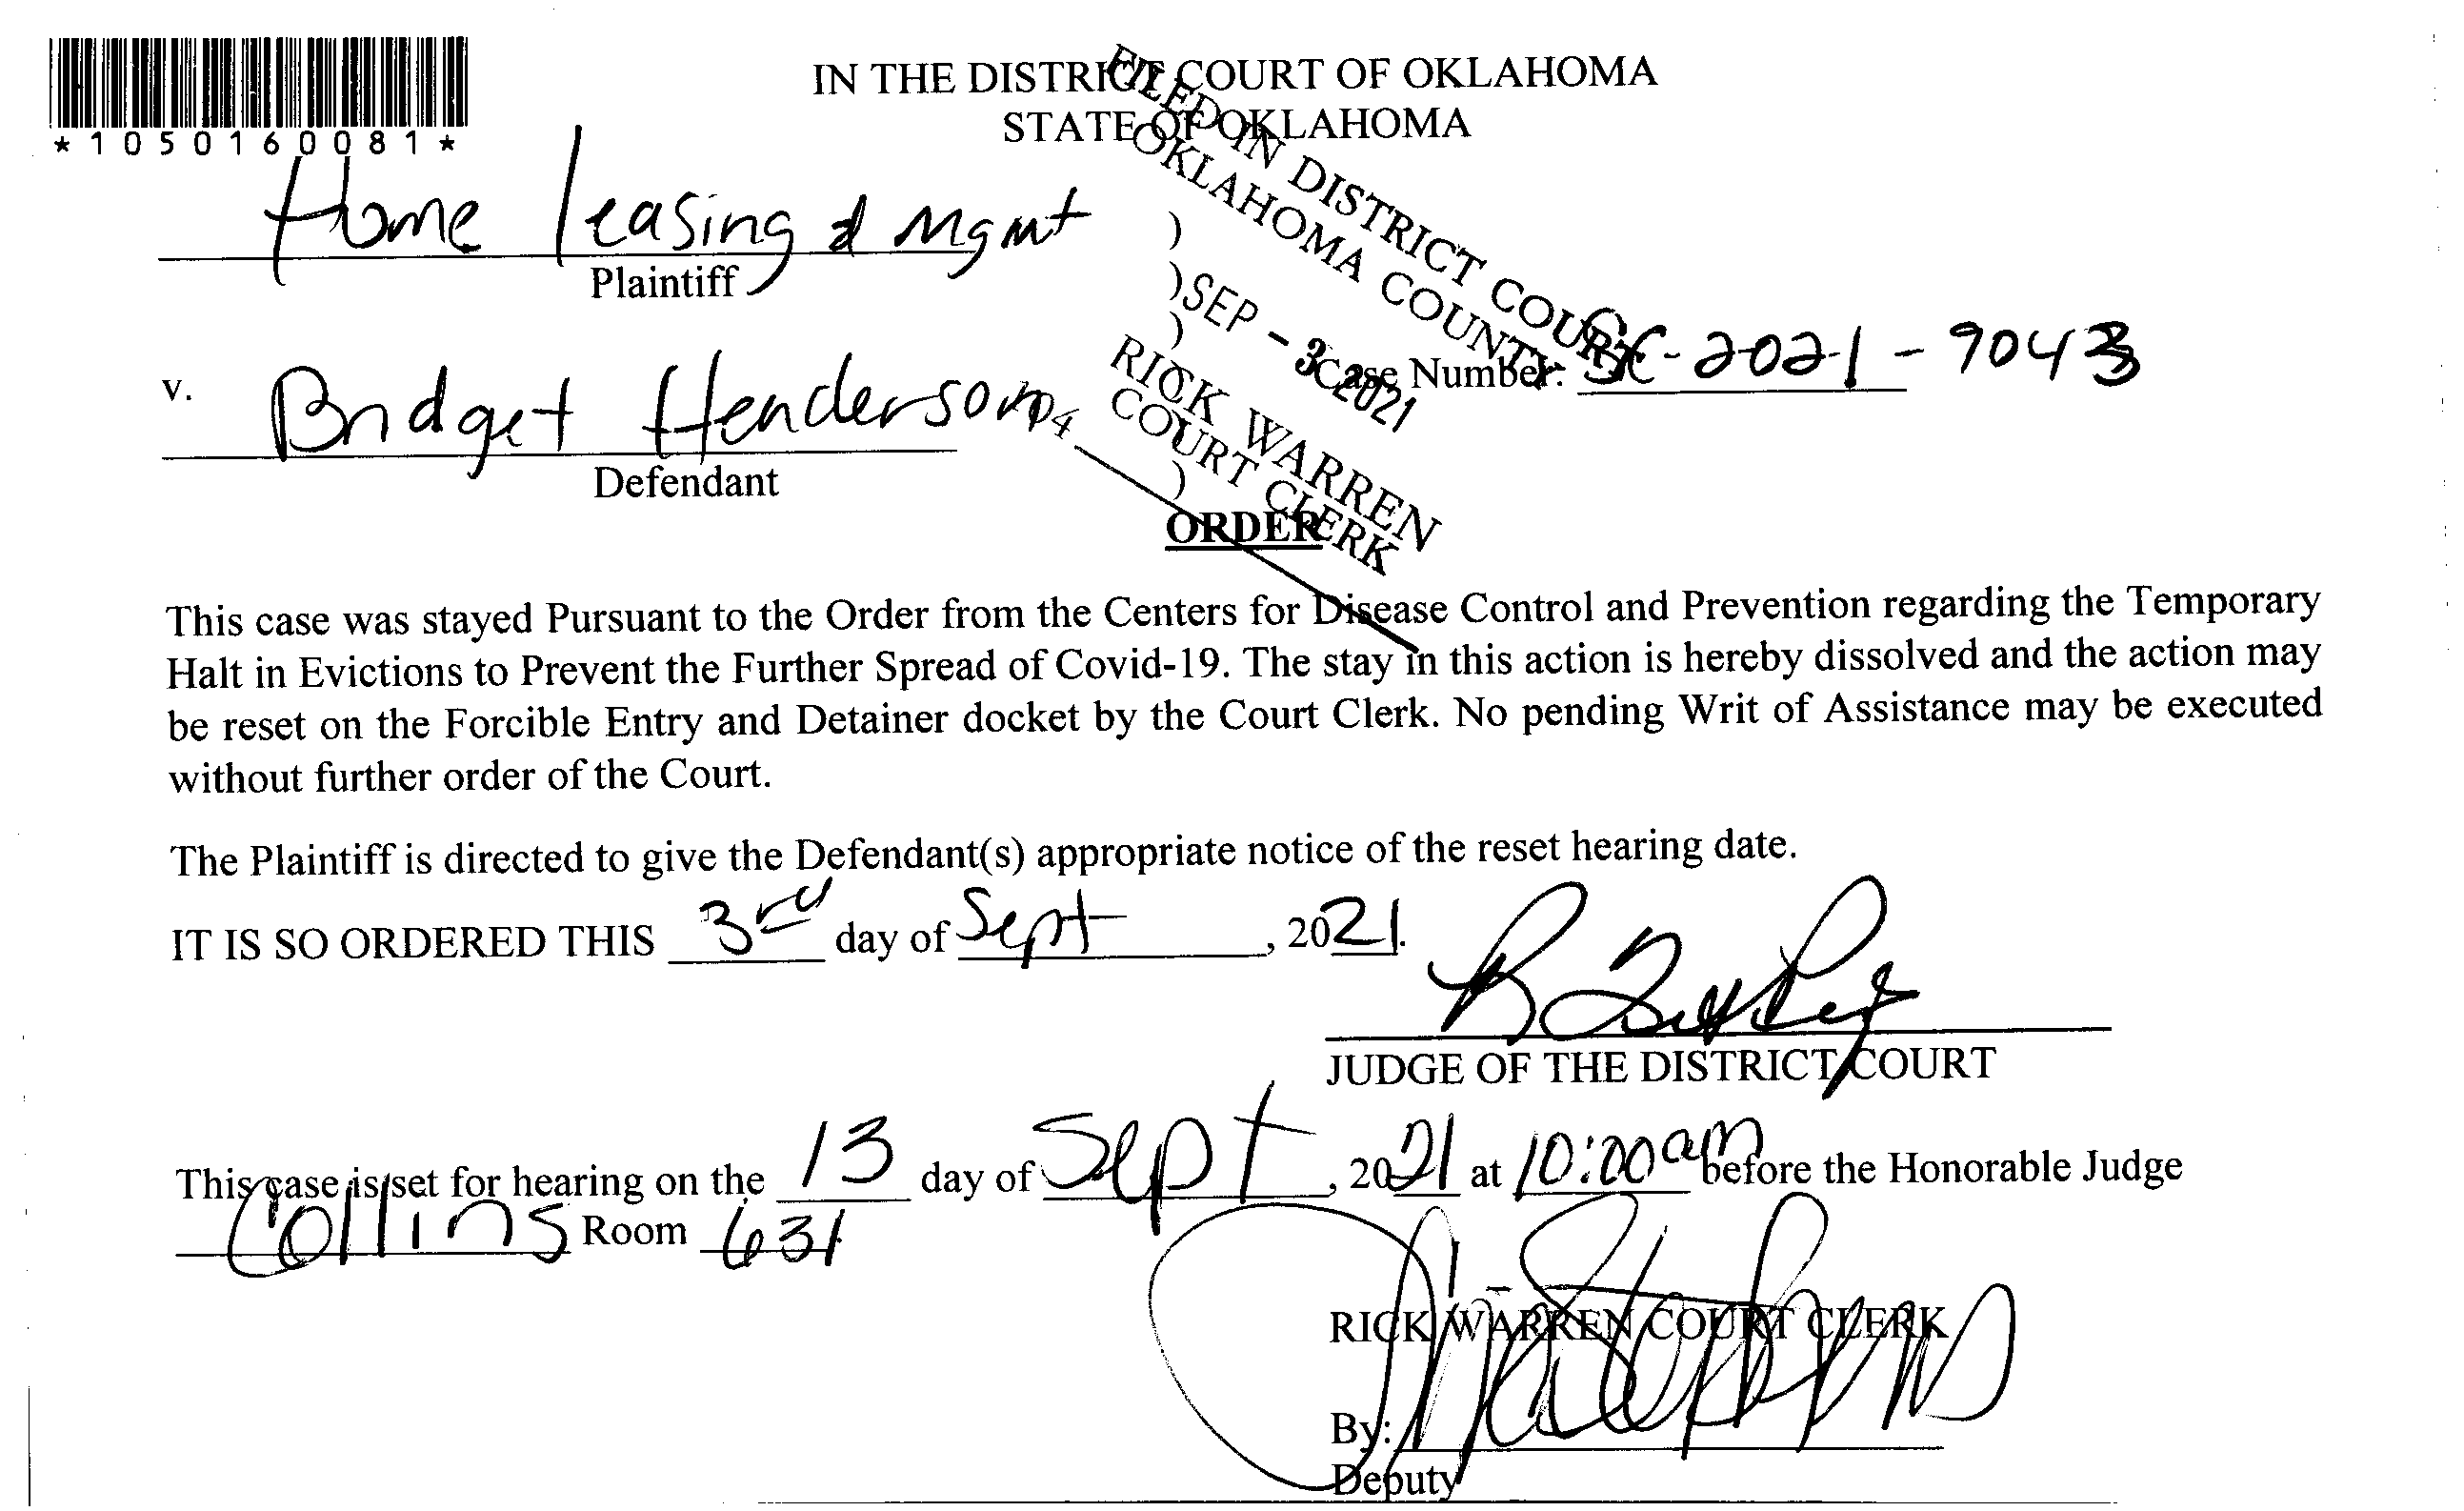 *1050160081*
IN THE DISTRICT COURT OF OKLAHOMA
STATE OF OKLAHOMA
FILED IN DISTRICT COURT
OKLAHOMA COUNTY
SEP - 3 2021
RICK WARREN
COURT CLERK
Home leasing & Mgmt )
Plaintiff )
)
v. Case Number: SC-2021-9043
Bridget Henderson
Defendant )
ORDER
This case was stayed Pursuant to the Order from the Centers for Disease Control and Prevention regarding the Temporary
Halt in Evictions to Prevent the Further Spread of Covid-19. The stay in this action is hereby dissolved and the action may
be reset on the Forcible Entry and Detainer docket by the Court Clerk. No pending Writ of Assistance may be executed
without further order of the Court.
The Plaintiff is directed to give the Defendant(s) appropriate notice of the reset hearing date.
IT IS SO ORDERED THIS 3rd day of Sept, 2021.
JUDGE OF THE DISTRICT COURT
This case is set for hearing on the 13 day of Sept, 2021 at 10:00am before the Honorable Judge
Collins Room 631
RICK WARREN COURT CLERK
By:
Deputy